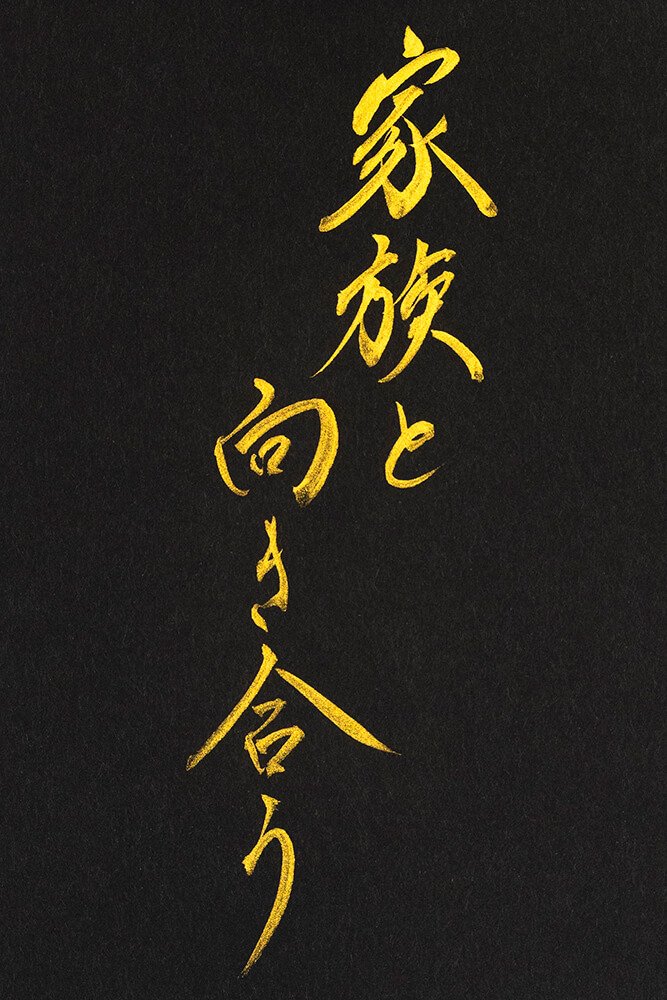 家族と
向き合う